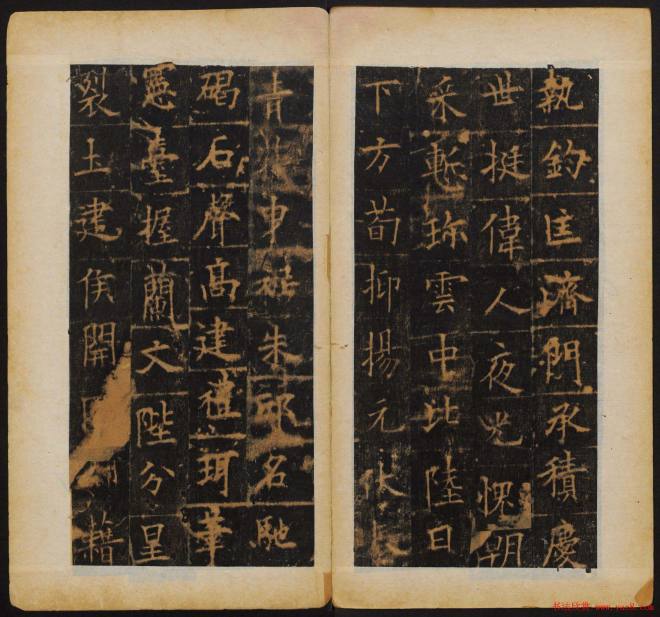 執鈞匡濟門承積慶
世挺偉人夜光愧朝
采慚珍雲中比陸日
下方荀抑揚元
青社申祉朱邸名馳
碣石聲高建禮珥筆
憲臺握蘭文陛分星
裂土建侯開籍